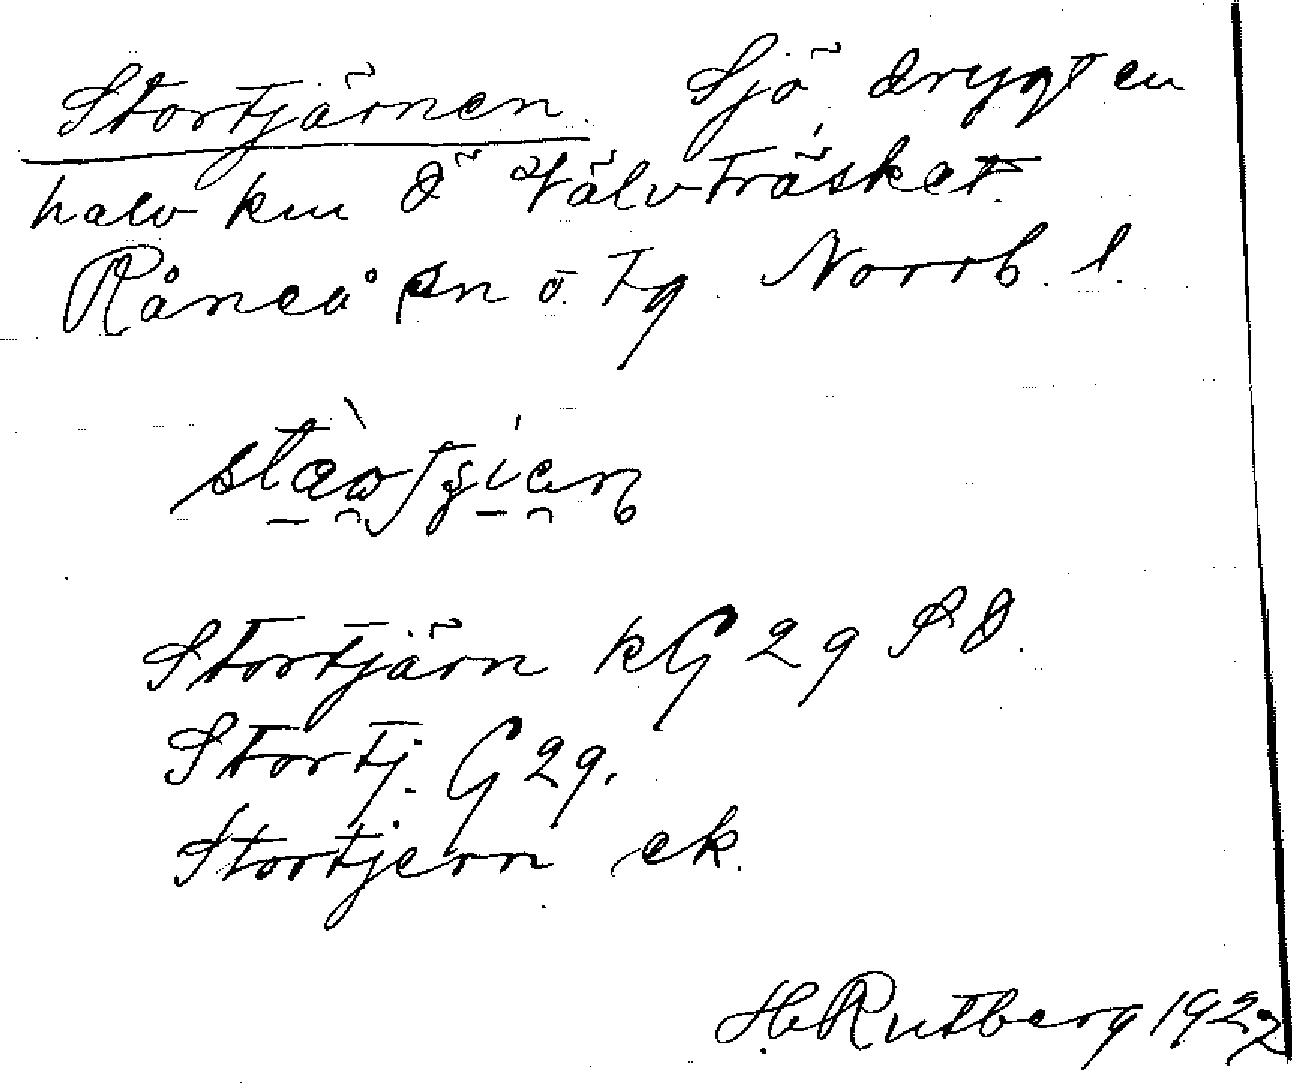 Stortjärnen. Sjö drygt en
halv km Ö Välvträsket.
Råneå sn o. tg Norrb. l.
Stortjärn kG 29 SO.
Stortj. G 29.
Stortjern ek.
H. Rutberg 1922